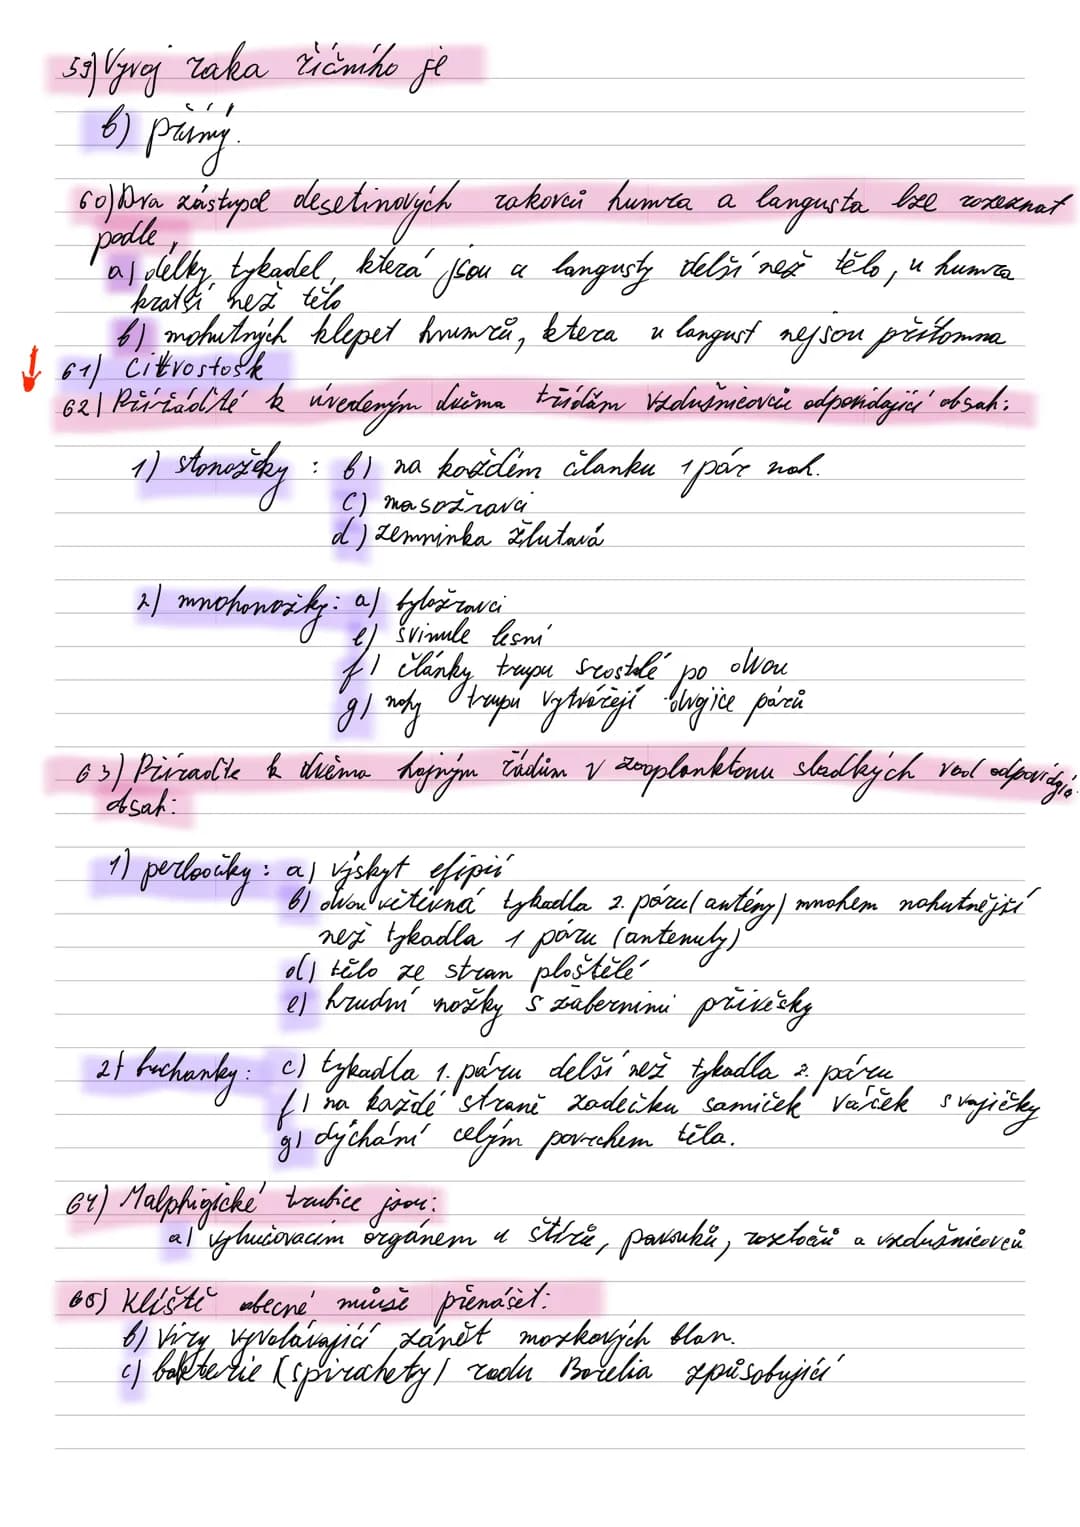 59) Vyvoj raka říčního je
b) přímý.
60) Dva zástupce desetinových rakovců humra a langusta lze rozeznat
podle,
a) délky tykadel, která jsou u langusty delší než tělo, u humra
kratší než tělo
b) mohutných klepet humrů, ktera u langust nejsou přítomna
61)
62) Přiřaďte k úvedeným dvěma třídám vzdušnicovců odpovídající obsah:
1) stonožky : b) na každém članku 1 pár noh.
c) masožravci
d) zemninka žlutavá
2) mnohonožky: a) byložravci
e) svinule lesní
f) články trupu srostlé po dvou
g) nohy trupu vytvářejí dvojice párů
63) Přiraďte k dvěma hojným řádům v zooplanktonu sladkých vod odpovídající
obsah:
1) perloočky: a) výskyt efipií
b) dvouvětevná tykadla 2. páru (antény) mnohem mohutnější
než tykadla 1 páru (antenuly)
d) tělo ze stran ploštělé
e) hrudní nožky s žaberními přívěsky
2) buchanky: c) tykadla 1. páru delší než tykadla 2. páru
f) na každé straně zadečku samiček váček s vajíčky
g) dýchání celým povrchem těla.
64) Malphigické trubice jsou:
a) vylučovacím orgánem u štírů, pavouků, roztočů a vzdušnicovců
65) Klíště obecné může přenášet:
b) viry vyvolávající zánět mozkových blan.
c) bakterie (spirochety) rodu Borelia způsobující